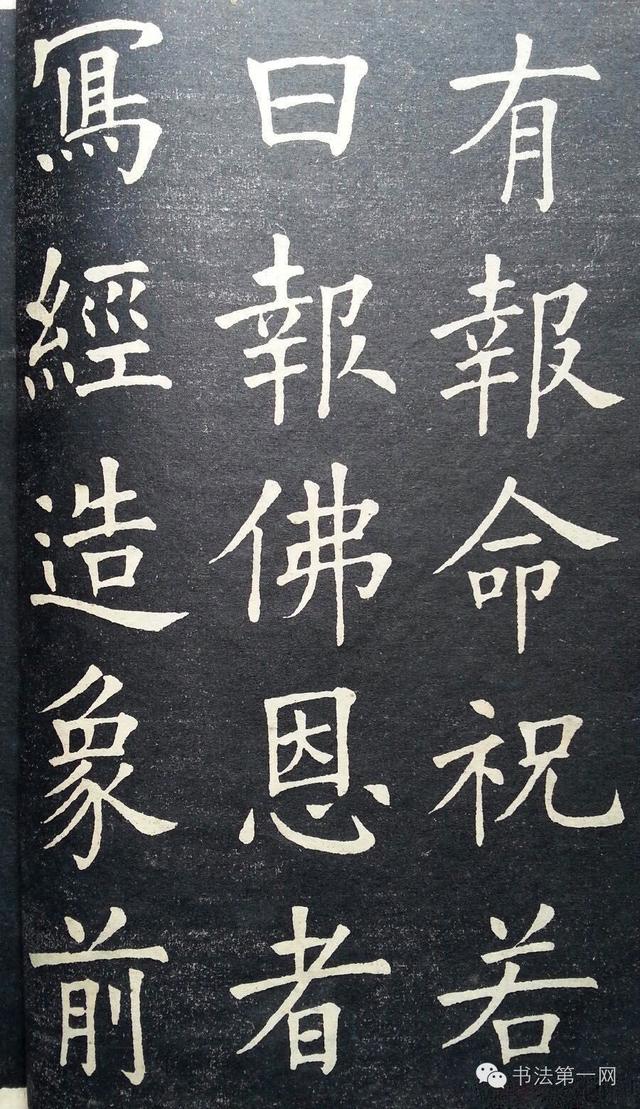 有報命祝若
曰報佛恩者
寫經造象前
书法第一网